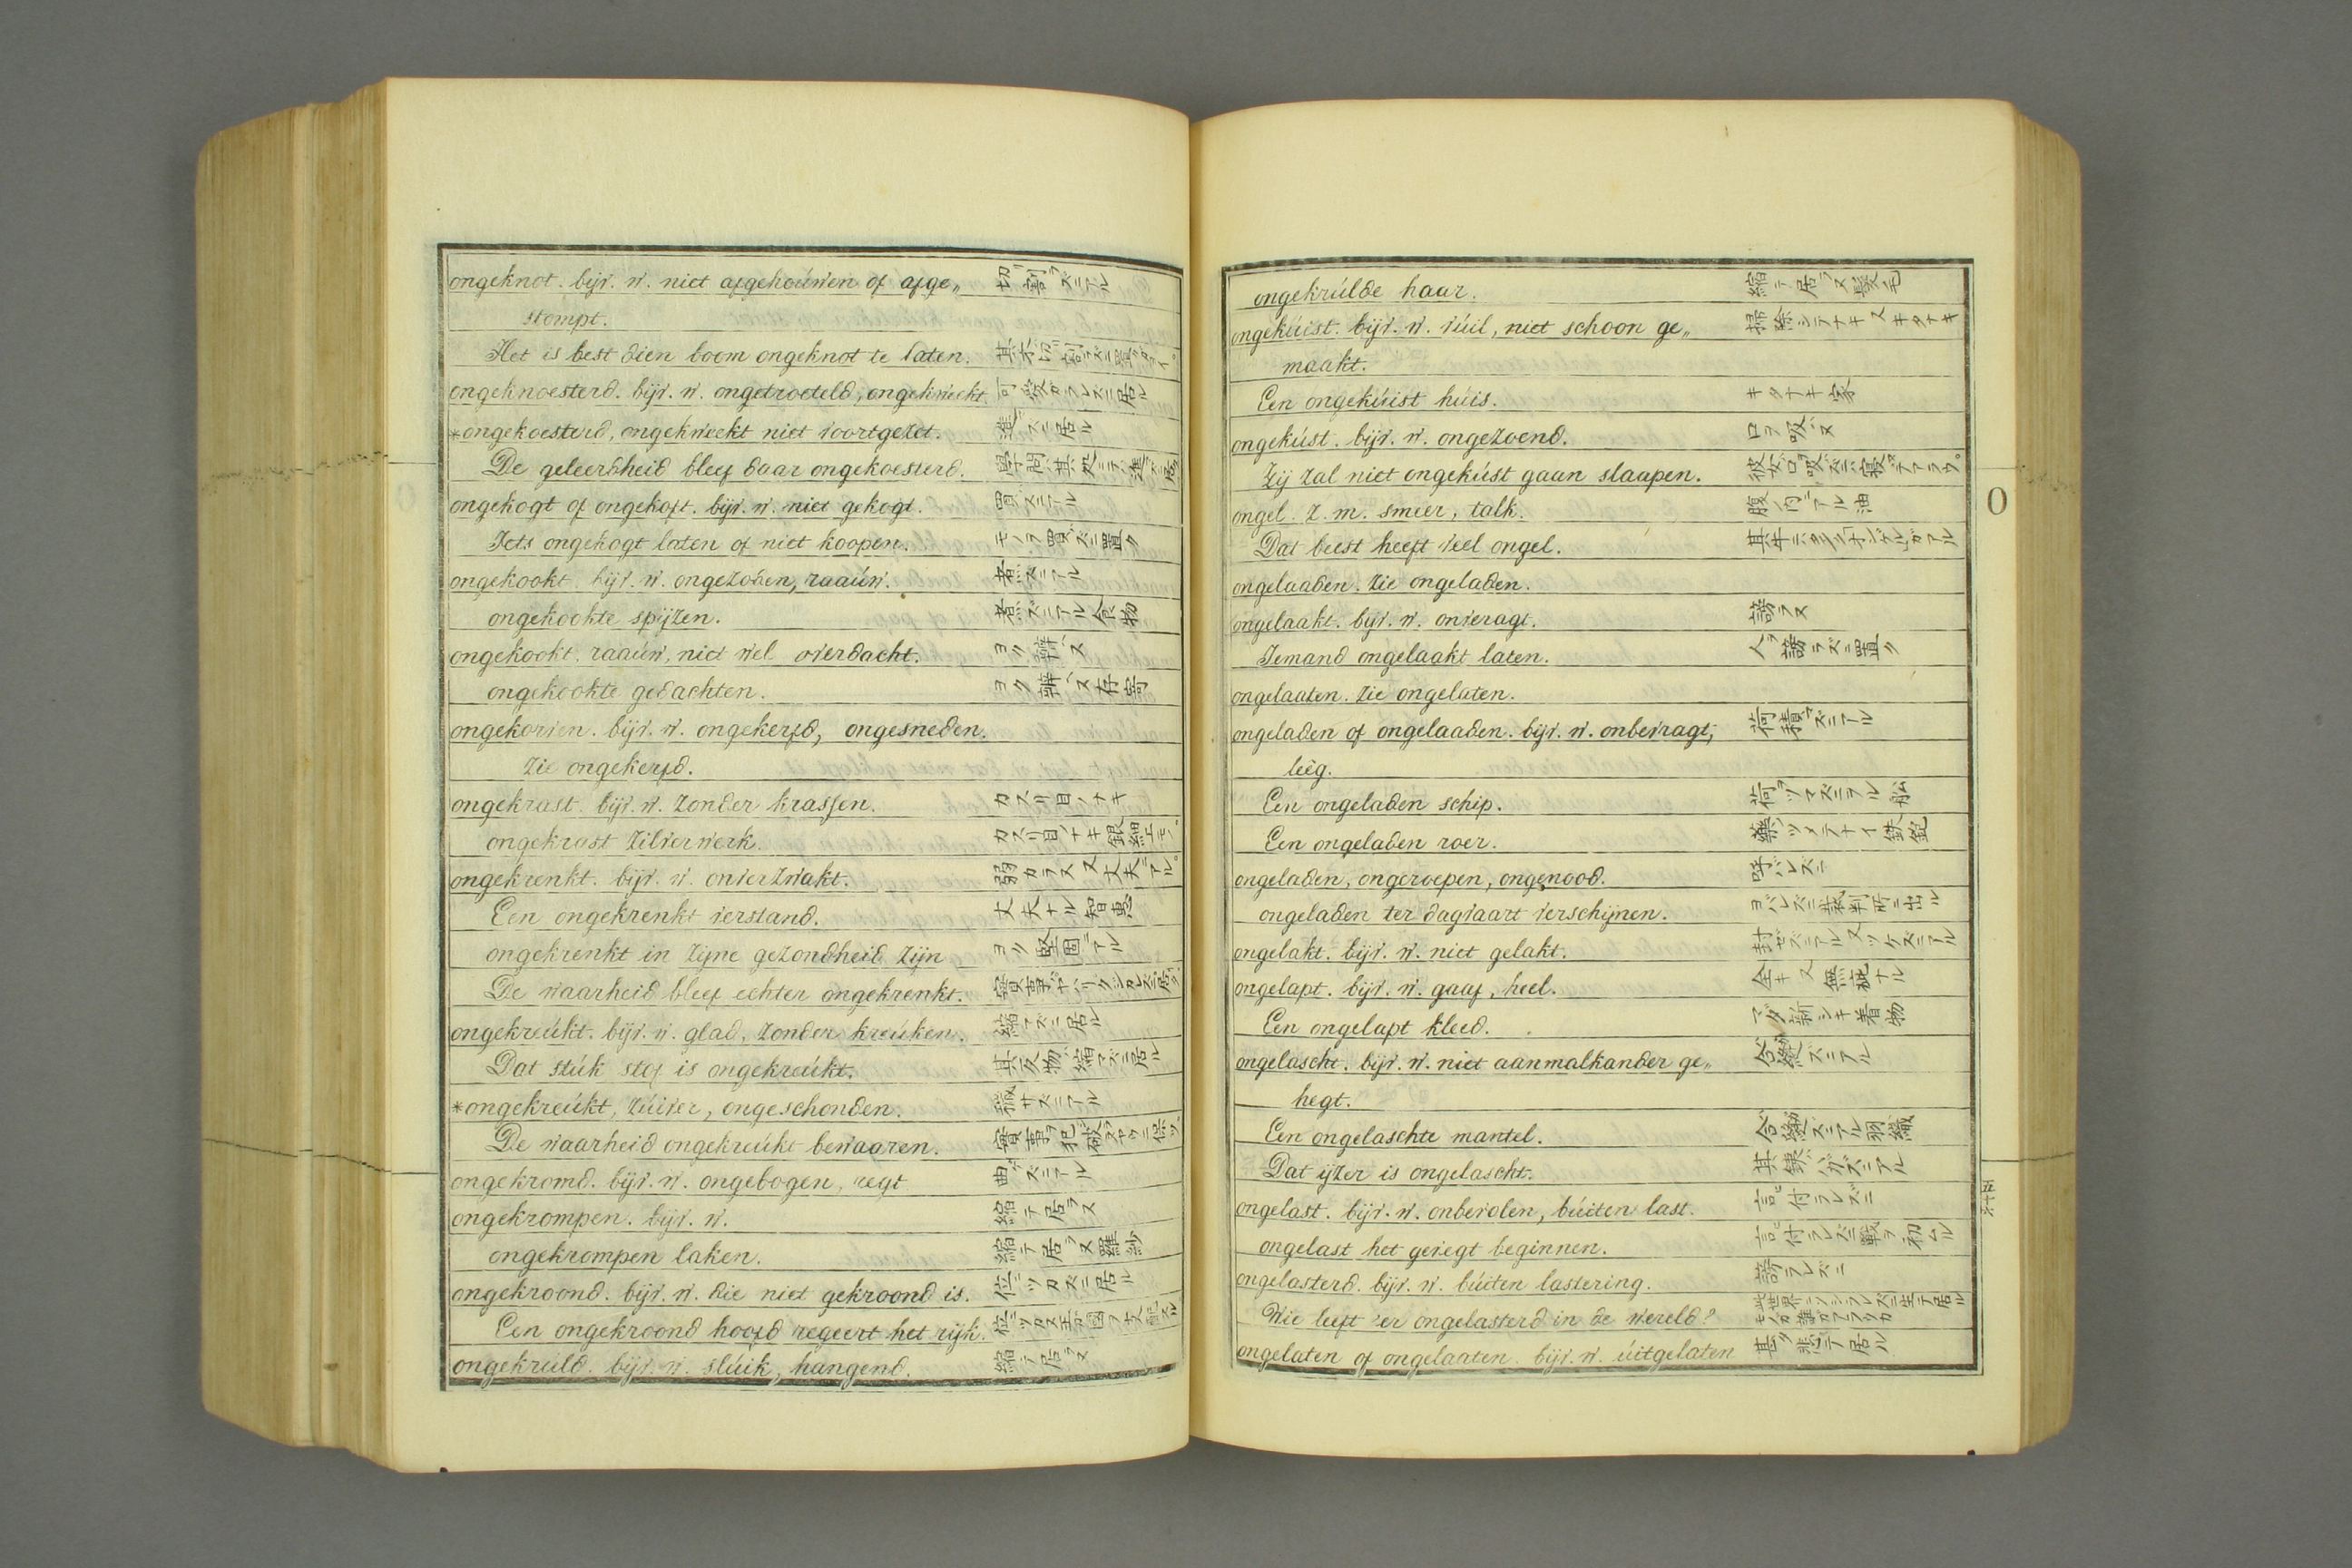 ongeknot. bijv. w. niet afgehoúwen of afge„ 切リ割ラズニアル
stompt.
Het is best dien boom ongeknot te laten. 其木ハ切リ割ラズニ置クガヨイ。
ongeknoesterd. bijv. w. ongetroeteld, ongekweekt. 可愛ガラレズニ居ル
*ongekoesterd, ongekweekt niet voortgezet. 進マズニ居ル
De geleerdheid bleef daar ongekoesterd. 學問ハ其処ニテ進マズニ居タ
ongekogt of ongekoft. bijv. w. niet gekogt. 買ズニアル
Iets ongekogt laten of niet koopen. モノヲ買ズニ置ク
ongekookt. bijv. w. ongezoden, raaúw. 煮ズニアル
ongekookte spijzen. 煮ズニアル食物
ongekookt. raaúw, niet wel overdacht. ヨク辨ヘヌ
ongekookte gedachten. ヨク辨ヘヌ存寄
ongekorven. bijv. w. ongekerfd, ongesneden.
zie ongekerfd.
ongekrast. bijv. w. zonder krassen. カスリ目ノナキ
ongekrast zilverwerk. カスリ目ノナキ銀細工モノ。
ongekrenkt. bijv. w. onverzwakt. 弱カラヌ 又丈夫デアル。
Een ongekrenkt verstand. 丈夫ナル智恵
ongekrenkt in zijne gezondheid zijn ヨク堅固デアル
De waarheid bleef echter ongekrenkt.
ongekreúkt. bijv. w. glad, zonder kreúken. 縮マズニ居ル
Dat stúk stof is ongekreúkt. 其反物ハ縮マズニ居ル
*ongekreúkt, zúiver, ongeschonden. 穢サズニアル
De waarheid ongekreúkt bewaaren.
ongekromd. bijv. w. ongebogen, regt 曲ズニアル
ongekrompen. bijv. w. 縮テ居ラヌ
ongekrompen laken. 縮テ居ラヌ羅紗
ongekroond. bijv. w. die niet gekroond is. 位ニツカズニ居ル
Een ongekroond hoofd regeert het rijk. 位ニツカヌ王ガ國ヲ支配スル
ongekrúld. bijv. w. slúik, hangend. 縮テ居ラヌ
ongekrúlde haar. 縮テ居ラヌ髪毛
ongekúist. bijv. w. vúil, niet schoon ge„ 掃除シテナキ 又キタナキ
maakt.
Een ongekúist húis. キタナキ家
ongekúst. bijv. w. ongezoend. 口ヲ吸ハヌ
Zij zal niet ongekúst gaan slaapen. 彼女ハ口ヲ吸ハズニハ寝ズデアラウ。
ongel. z. m. smeer, talk. 腹ノ内ニアル油
Dat beest heeft veel ongel.
ongelaaden. zie ongeladen.
ongelaakt. bijv. w. onveragt. 謗ラヌ
Iemand ongelaakt laten. 人ヲ謗ラズニ置ク
ongelaaten. zie ongelaten.
ongeladen of ongelaaden. bijv. w. onbevragt, 荷ヲ積マズニアル
leêg.
Een ongeladen schip. 荷ヲツマズニアル舩
Een ongeladen roer. 藥ノツメテナイ鉄鉋
ongeladen, ongeroepen, ongenood. 呼バレズニ
ongeladen ter dagvaart verschijnen. ヨバレズニ裁判所ニ出ル
ongelakt. bijv. w. niet gelakt. 封ゼズニアル 又ツケズニアル
ongelapt. bijv. w. gaaf, heel. 全キ 又無疵ナル
Een ongelapt kleed. マダ新シキ着物
ongelascht. bijv. w. niet aanmalkander ge„ 合縫ズニアル
hegt.
Een ongelaschte mantel. 合縫ズニアル羽織
Dat ijzer is ongelascht. 其鉄ハツガズニアル
ongelast. bijv. w. onbevolen, búiten last. 言ヒ付ラレズニ
ongelast het gevegt beginnen. 言ヒ付ラレズニ戰ヲ初ムル
ongelasterd. bijv. w. búiten lastering. 謗ラレズニ
Wie leeft 'er ongelasterd in de wereld? 此世界ニソシラレズニ生テ居ルモノハ誰デアラウカ
ongelaten of ongelaaten. bijv. w. úitgelaten 甚タ悲テ居ル
O
五十六